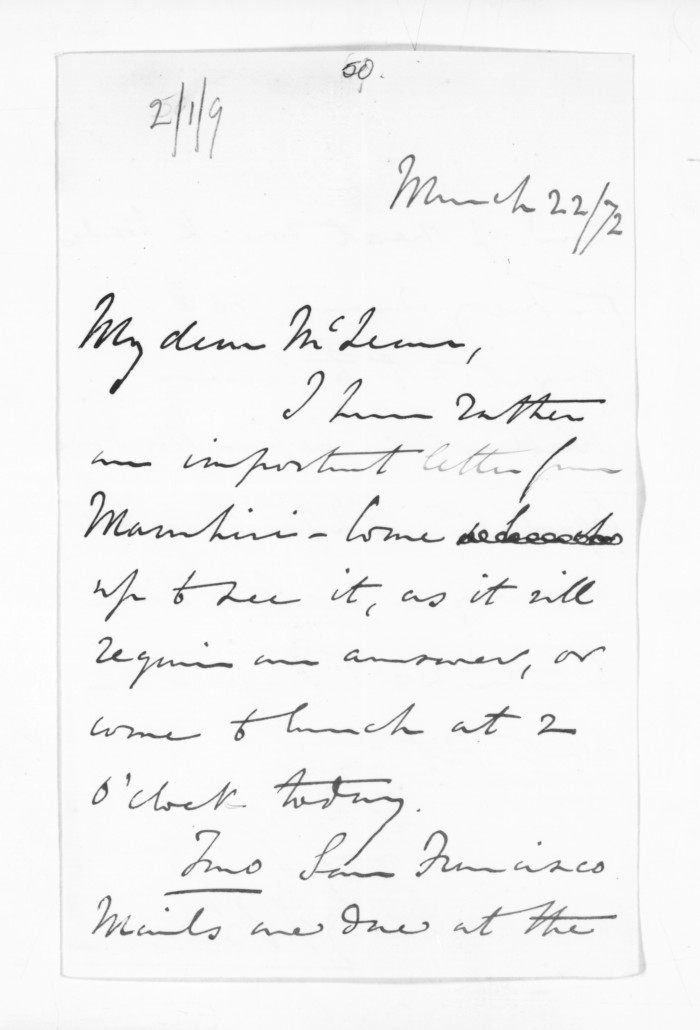 50.
2/1/9
March 22/72
My dear McLean,
I have rather
an important letter from
Mamhiri - Come
up to see it, as it will
require an answer, or
come to lunch at 2
o'clock today.
Two San Francisco
Mails are due at the